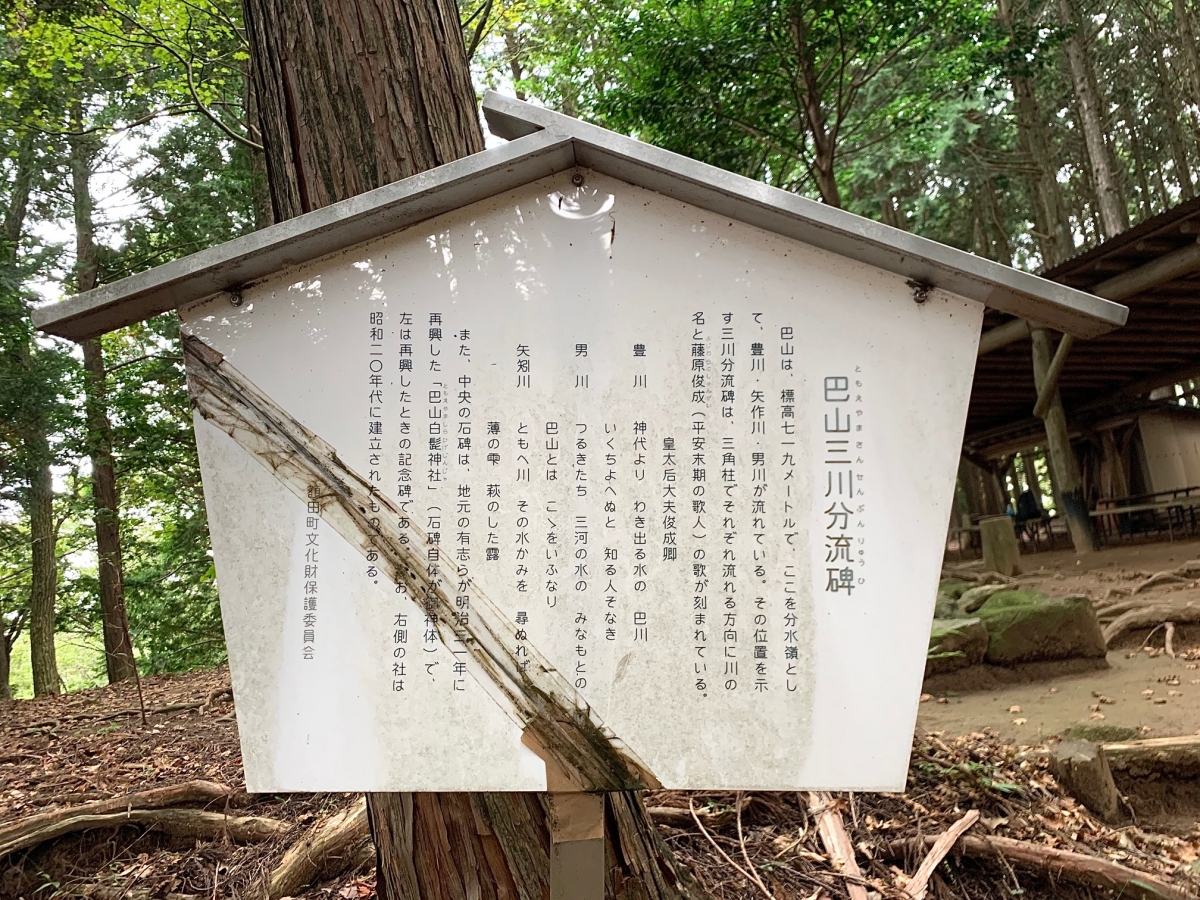 巴山三川分流碑
ともえやまさんせんぶんりゅうひ
巴山は、標高七一九メートルで、ここを分水嶺とし
て、豊川・矢作川・男川が流れている。その位置を示
す三川分流碑は、三角柱でそれぞれ流れる方向に川の
名と藤原俊成（平安末期の歌人）の歌が刻まれている。
皇太后大夫俊成卿
豊川　神代より　わき出る水の　巴川
いくちよへぬと　知る人そなき
男川　つるきたち　三河の水の　みなもとの
巴山とは　こゝをいふなり
矢矧川　ともへ川　その水かみを　尋ぬれば
薄の雫　萩のした露
また、中央の石碑は、地元の有志らが明治三一年に
再興した「巴山白髭神社」（石碑自体が御神体）で、
ともえやましらひげじんじゃ
左は再興したときの記念碑である　お、右側の社は
昭和二〇年代に建立されたものである。
額田町文化財保護委員会